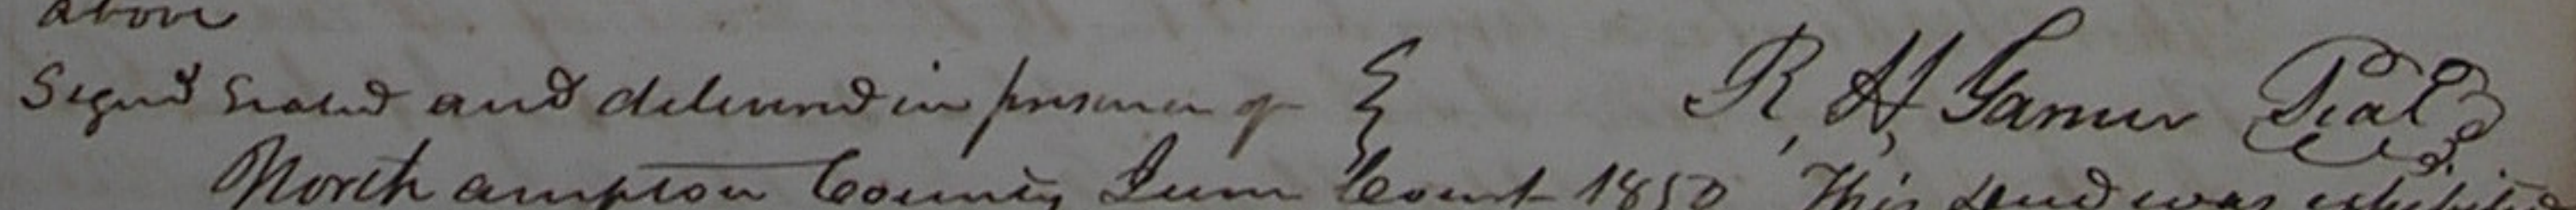 above
Signd Seald and deliverd in presence of
R, H, Garner Seal
North ampton County June Court 1850 This deed was exhibited